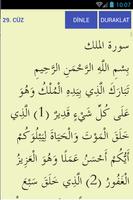 29. CÜZ DİNLE DURAKLAT
سورة الملك
بِسْمِ اللَّهِ الرَّحْمَنِ الرَّحِيمِ
تَبَارَكَ الَّذِي بِيَدِهِ الْمُلْكُ وَهُوَ
عَلَى كُلِّ شَيْءٍ قَدِيرٌ (1) الَّذِي
خَلَقَ الْمَوْتَ وَالْحَيَاةَ لِيَبْلُوَكُمْ
أَيُّكُمْ أَحْسَنُ عَمَلًا وَهُوَ الْعَزِيزُ
الْغَفُورُ (2) الَّذِي خَلَقَ سَبْعَ